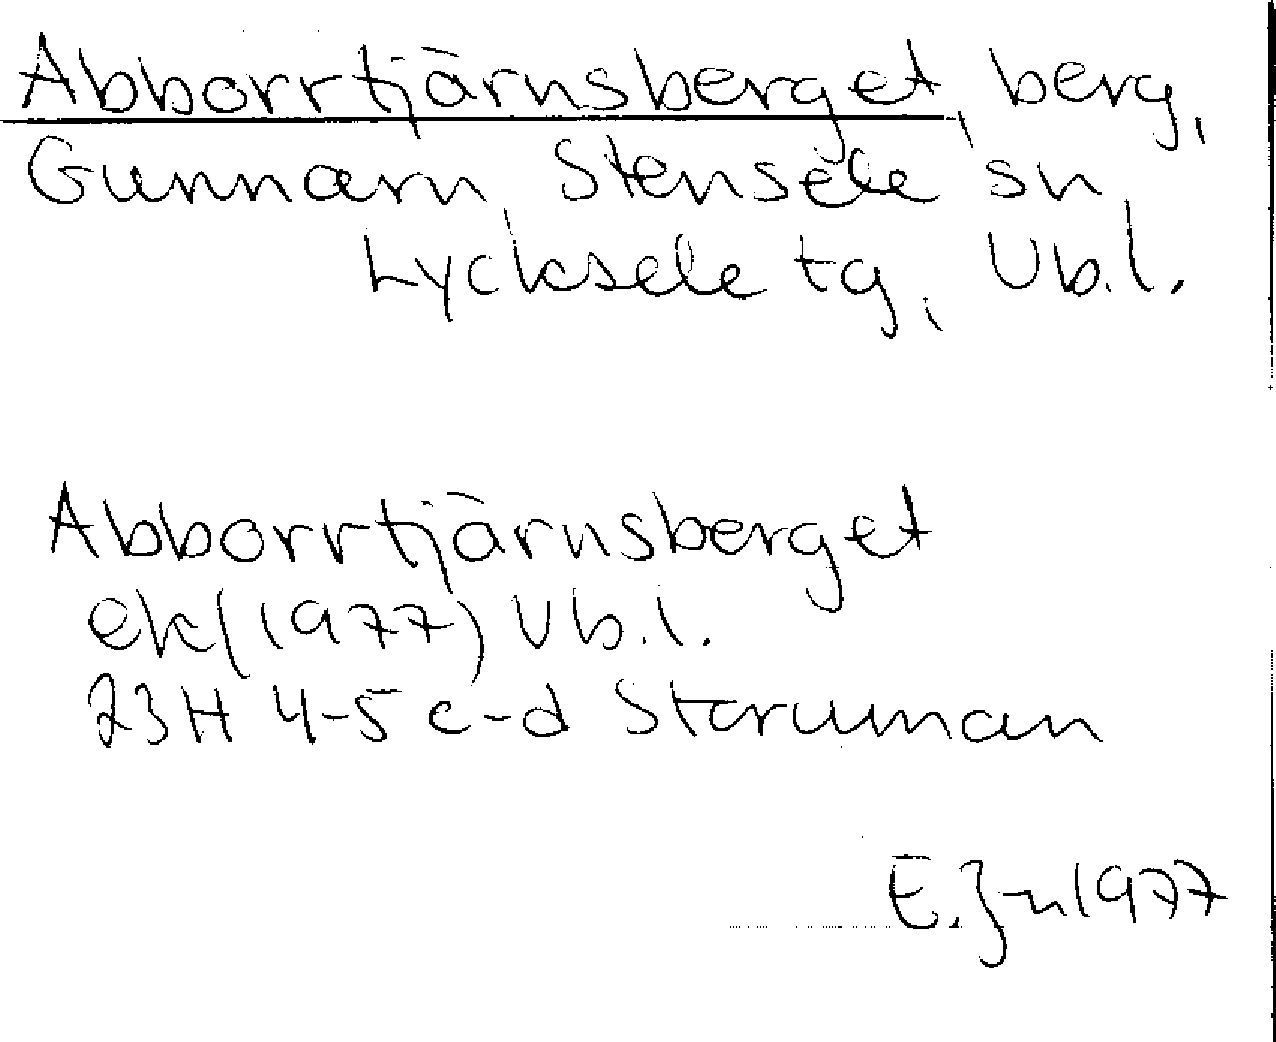 Abborrtjärnsberget, berg,
Gunnarn, Stensele sn
Lycksele tg, Vb.l.
Abborrtjärnsberget
ek(1977) Vb.l.
23H 4-5 c-d Storuman
E. J-n 1977